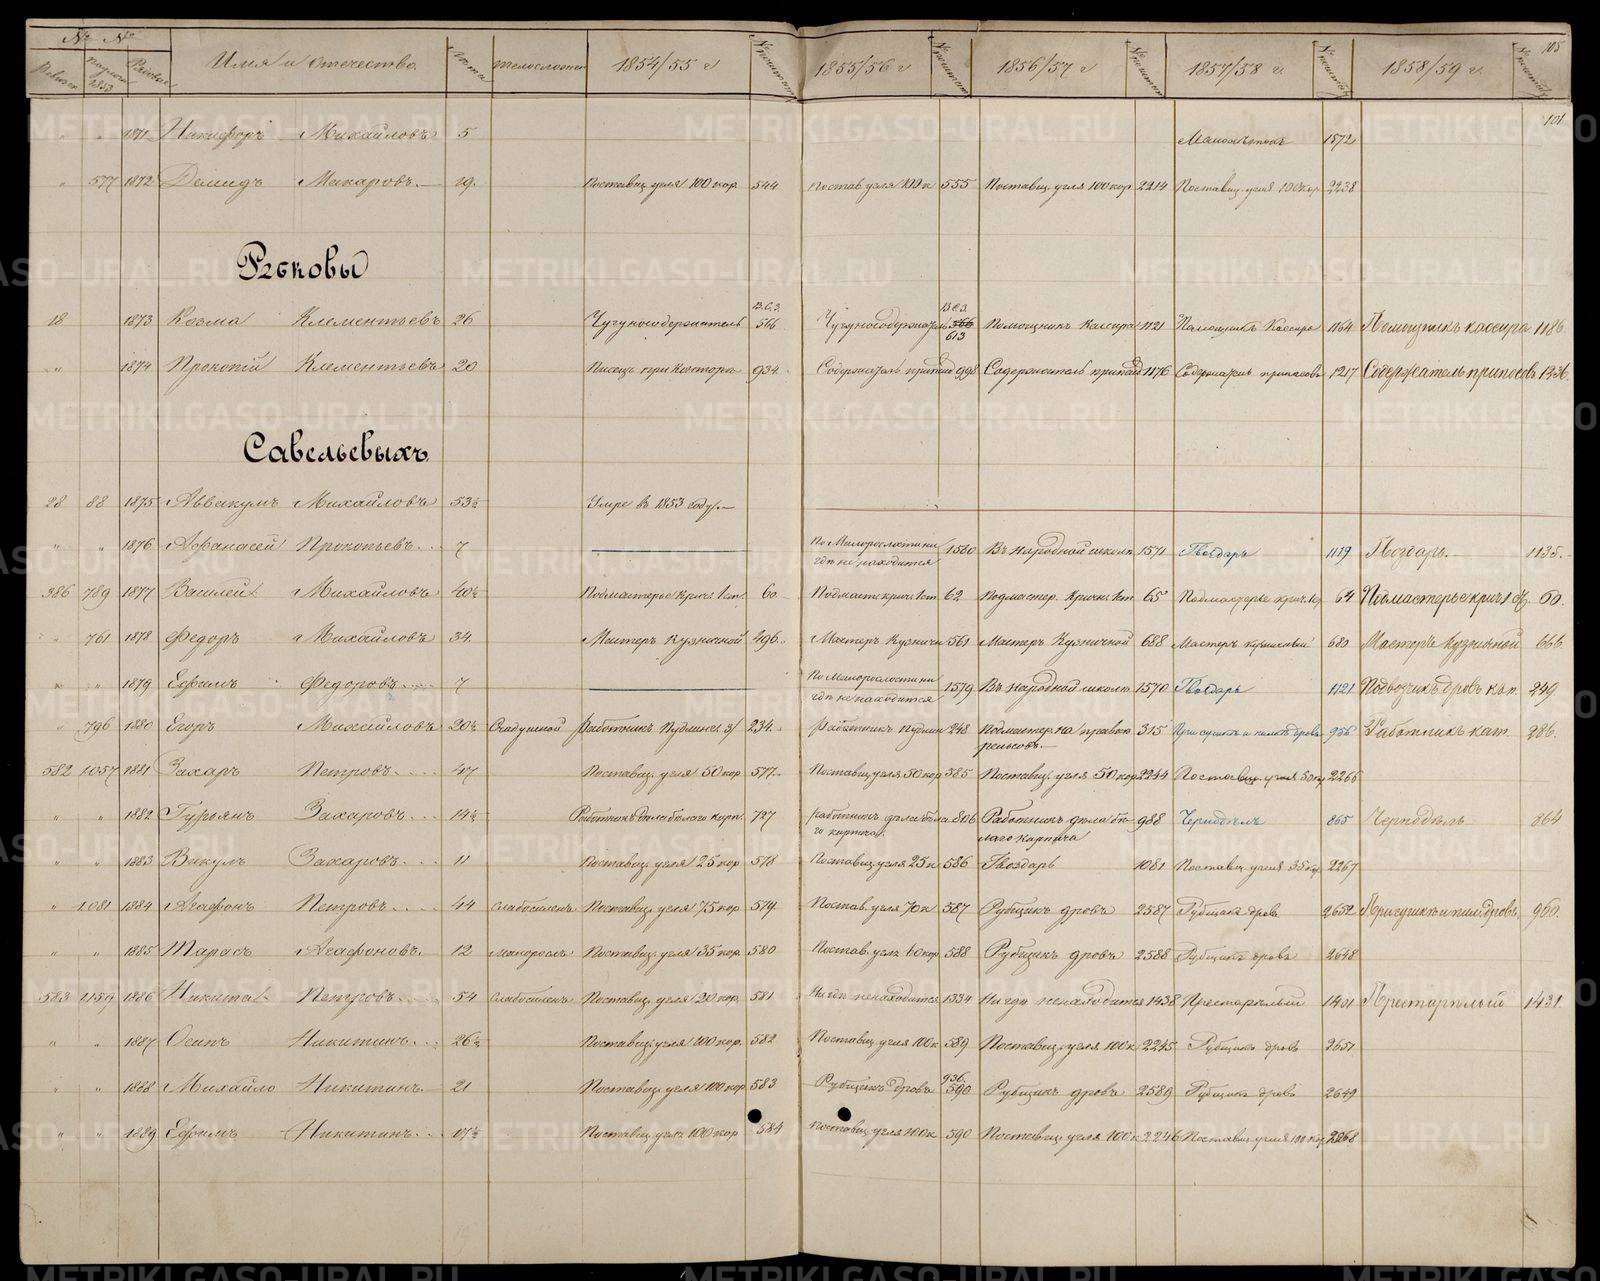 № № Имя и Отечество. Лѣта Телосложен 1854/55 г № 1855/56 г № 1856/57 г № 1857/58 г. № 1858/59 г. № 105
101
" " 1871 Никифоръ Михайловъ 5 Малолѣтокъ 1572
" 577 1872 Демидъ Макаровъ.— 19. Поставщ. угля 100 кор. 544 Постав угля 100 к 555 Поставщ. угля 100 кор. 2214 Поставщ. угля 100 кор. 2238
Рѣковы
18 1873 Козма Клементьевъ 26 Чугуносодержатель 566 Чугуносодержатель 566 613 Помощникъ Кассира 1121 Помощникъ Кассира 1164 Помощникъ кассира 1186.
" 1874 Прокопій Клементьевъ 20 Писецъ при Конторѣ 934. Содержатель припас 998 Содержатель припас 1176 Содержатель припасовъ 1217 Содержатель припосовъ 1236.
Савельевыхъ
28 88 1875 Аввакумъ Михайловъ 53½ Умре въ 1853 году.—
" " 1876 Афанасей Прокопьевъ... 7 По Малорослости ни гдѣ не находится 1580 Въ народной школѣ 1571 Гвоздарь 1119 Гвоздарь.— 1135.—
386 789 1877 Василей Михайловъ 40½ Подмастерье Крич. 1 ст. 60 Подмаст. крич. 1 ст 62 Подмастер. Кричн. 1 ст. 65 Подмастерье крич. 1 ст 64 Подмастерье крич 1 ст. 60.
" 761 1878 Федоръ Михайловъ 34. Мастеръ Кузничной 496. Мастеръ Кузничн 561 Мастеръ Кузничной 688 Мастеръ кузничный 680 Мастеръ Кузничной 666.
" " 1879 Ефимъ Федоровъ 7 По Малорослости ни гдѣ не находится 1579 Въ народной школѣ 1570 Гвоздарь 1121 Подвозчикъ дровъ кат. 249.
" 796 1880 Егоръ Михайловъ 20½ Скадушной Работникъ Пудлинг. 3/ 234. Работникъ пудлин 248 Подмастер. на правкѣ рельсовъ.— 315 При сушкѣ и пилкѣ дровъ 956 Работникъ кат. 286.
582 1057 1881 Захаръ Петровъ.... 47 Поставщ. угля 50 кор 577. Поставщ угля 50 кор 585 Поставщ. угля 50 кор 2244 Поставщ. угля 50 кор 2266
" " 1882 Гурьянъ Захаровъ... 14½ Работникъ дѣла белаго кирп. 727 Работникъ дѣла бѣла го кирпича. 806 Работникъ дѣла бѣ лаго кирпича 988 Чернодѣлъ 865 Чернодѣлъ 864
" " 1883 Викулъ Захаровъ... 11 Поставщ. угля 25 кор 578 Поставщ угля 25 к 586 Гвоздарь 1081 Поставщ угля 35 кор 2267
" 1081 1884 Агафонъ Петровъ.... 44 слабосиленъ Поставщ. угля 75 кор 579 Постав. угля 70 к 587 Рубщикъ дровъ 2587 Рубщикъ дровъ 2652 Присушкѣ и пилк. дровъ 960.
" " 1885 Тарасъ Агафоновъ. 12 малорослъ Поставщ. угля 35 кор 580 Постав. угля 40 кор 588 Рубщикъ дровъ 2588 Рубщикъ дровъ 2648
583 1159 1886 Никита Петровъ.... 54 Слабосиленъ Поставщ. угля 20 кор. 581 Нигдѣ ненаходится 1334 Нигдѣ ненаходится 1438 Престарѣлый 1401 Престарѣлый 1431.
" " 1887 Осипъ Никитинъ... 26½ Поставщ. угля 100 кор. 582 Поставщ угля 100 к 589 Поставщ. угля 100 к 2245 Рубщикъ дровъ 2651
" " 1888 Михайло Никитинъ. 21 Поставщ. угля 100 кор 583 Рубщикъ дровъ 936. 590 Рубщикъ дровъ 2589 Рубщикъ дровъ 2649
" " 1889 Ефимъ Никитинъ... 17½ Поставщ. угля 100 кор 584 Поставщ угля 100 к 590 Поставщ. угля 100 к 2246 Поставщ. угля 100 кор 2268
METRIKI.GASO-URAL.RU